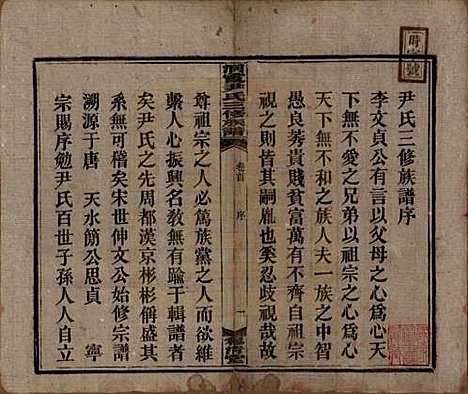 尹氏三修族譜序
李文貞公有言以父母之心爲心天
下無不愛之兄弟以祖宗之心爲心
天下無不和之族人夫一族之中智
愚良莠貴賤貧富萬有不齊自祖宗
視之則皆其嗣胤也奚忍歧視哉故
尹氏三修族譜
卷首
序
一
尊祖宗之人必篤族黨之人而欲維
繫人心振興名敎無有踰于修輯者
矣尹氏之先周都漢京彬彬稱盛其
系無可稽矣宋世仲文公始修宗譜
溯源于唐 天水節公思貞 寧
宗賜序勉尹氏百世子孫人人自立